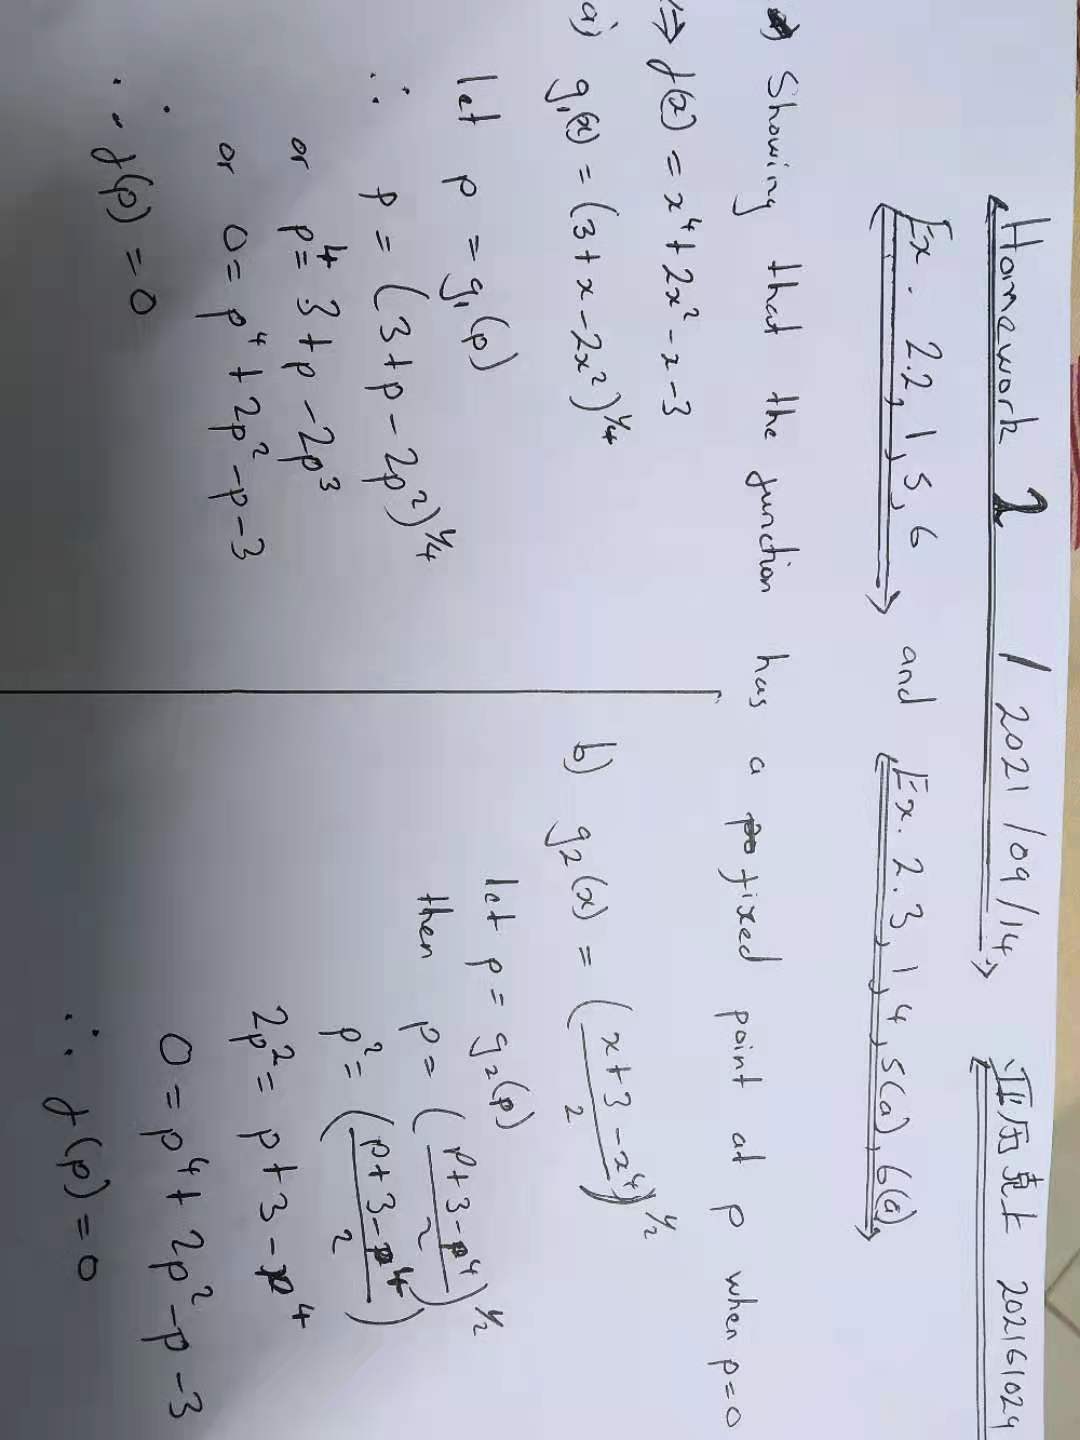 Homework 2 / 2021/09/14 亚历克上 202161029
Ex. 2.2, 1, 5, 6 and Ex. 2.3, 1, 4, 5(a), 6(a)
Showing that the function has a fixed point at p when p=0
⇒ f(x) = x⁴ + 2x² - x - 3
a) g₁(x) = (3 + x - 2x²)^¼
let p = g₁(p)
∴ p = (3 + p - 2p²)^¼
or p⁴ = 3 + p - 2p³
or 0 = p⁴ + 2p² - p - 3
∴ f(p) = 0
b) g₂(x) = ((x + 3 - x⁴)/2)^½
let p = g₂(p)
then p = ((p + 3 - p⁴)/2)^½
p² = ((p + 3 - p⁴)/2)
2p² = p + 3 - p⁴
0 = p⁴ + 2p² - p - 3
∴ f(p) = 0